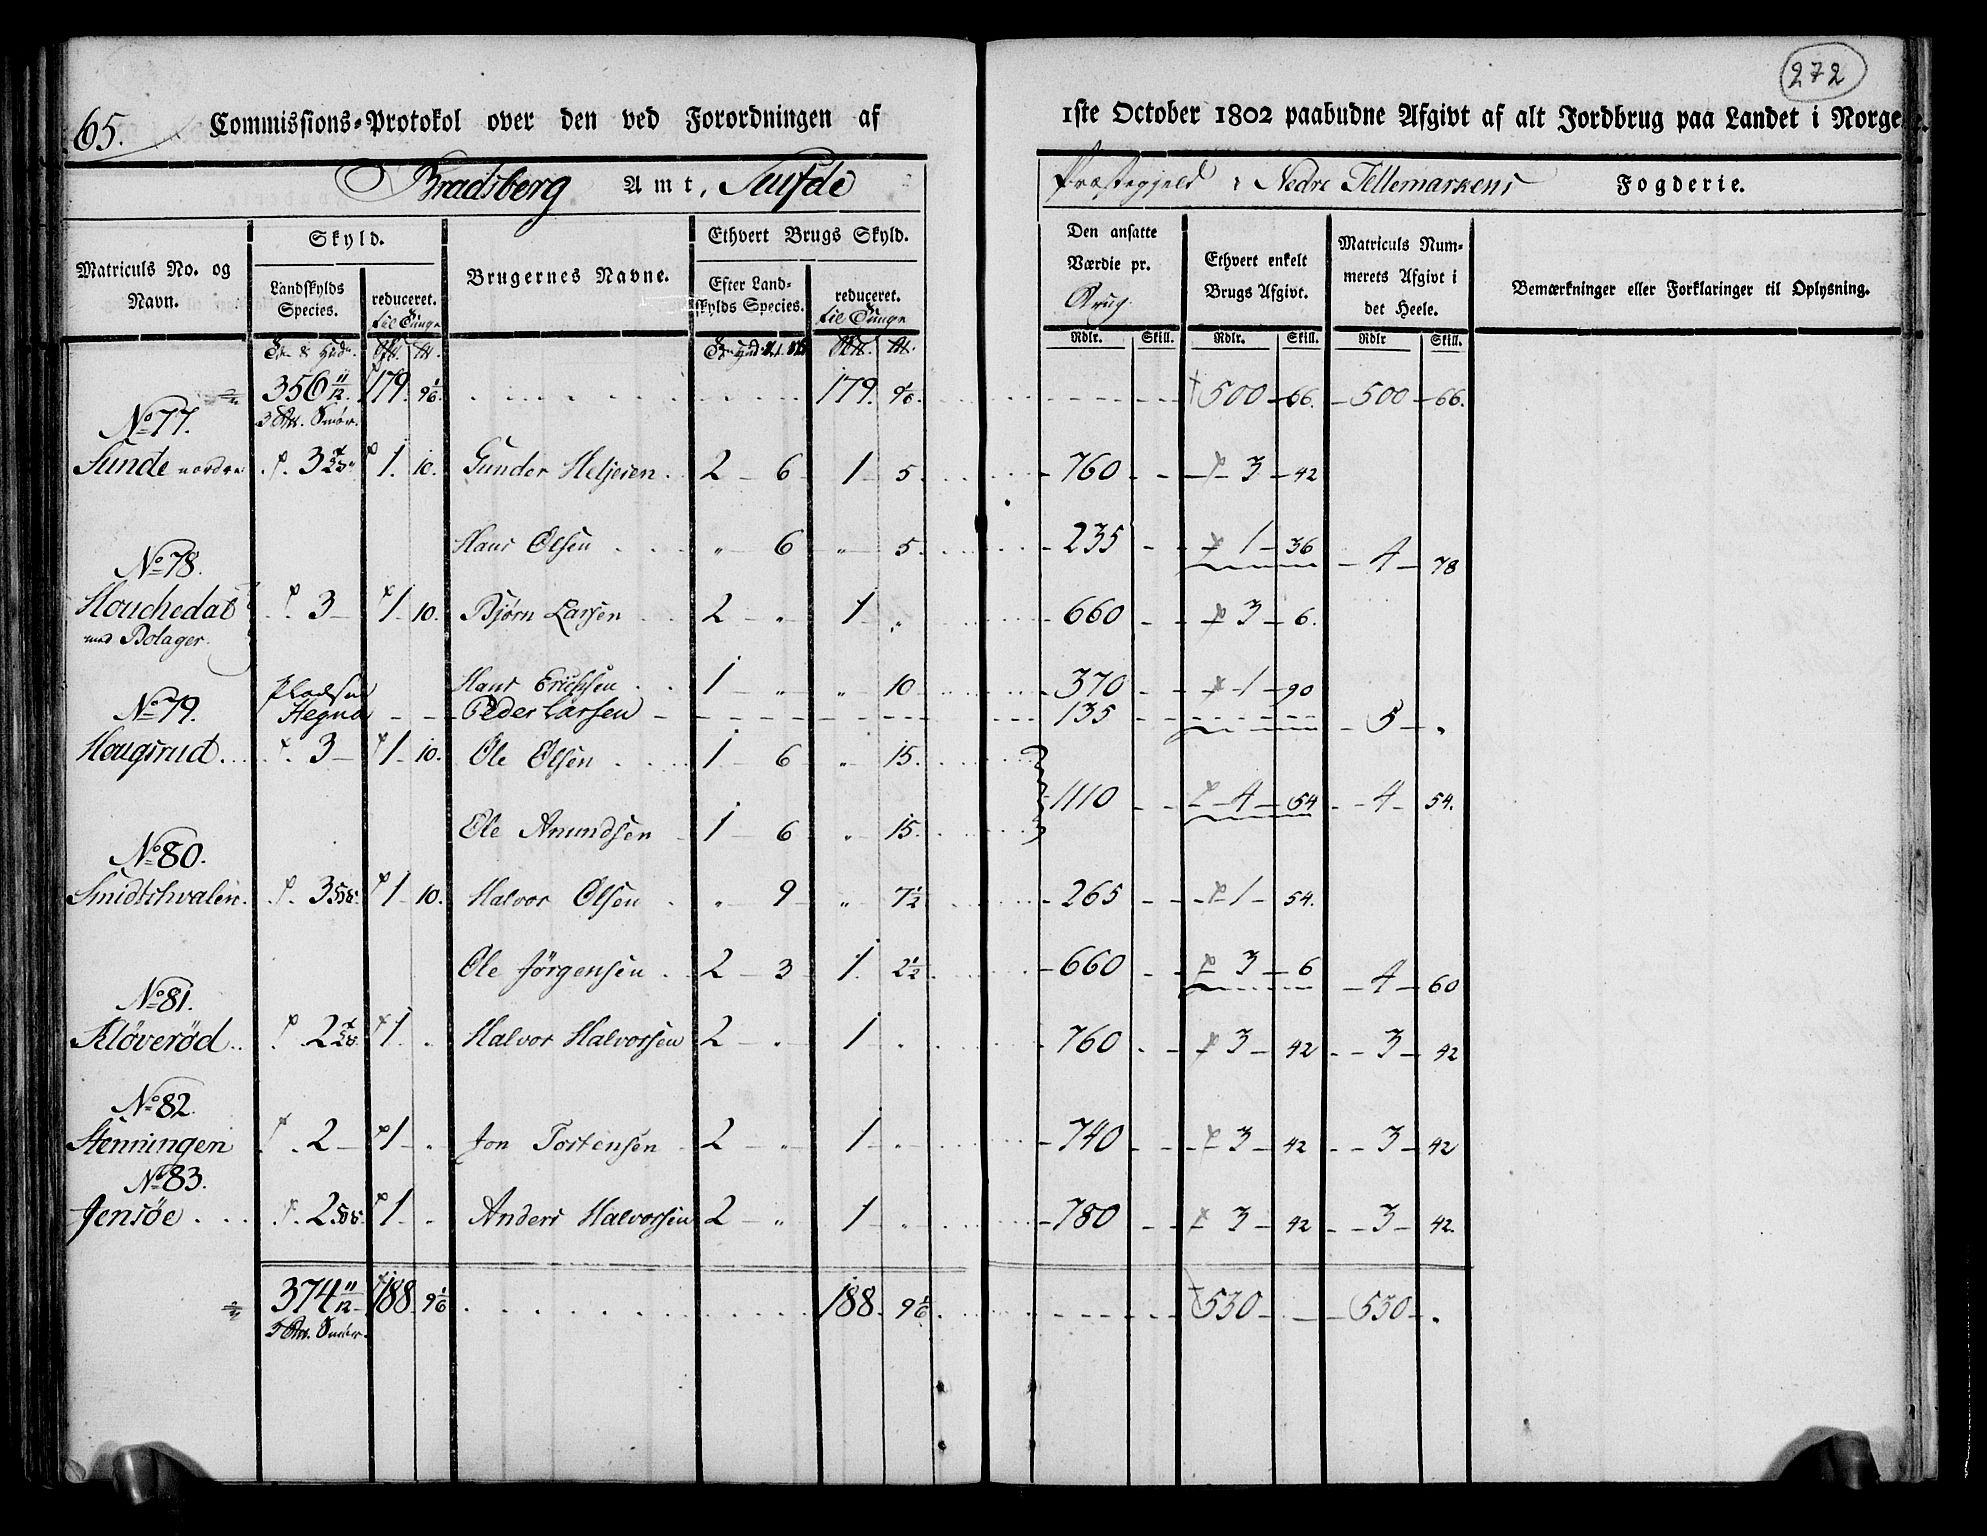 272
65. Commissions-Protokol over den ved Forordningen af 1ste October 1802 paabudne Afgivt af alt Jordbrug paa Landet i Norge.
Bradsberg Amt, Præstegjeld i Nedre Tellemarkens Fogderie.
Matriculs No. og Navn. Skyld. Brugernes Navne. Ethvert Brugs Skyld. Den ansatte Værdie pr. Brug. Ethvert enkelt Brugs Afgivt. Matriculs Nummerets Afgivt i det Heele. Bemærkninger eller Forklaringer til Oplysning.
Landskylds Species. reduceret. til Tunge Efter Landskylds Species. reduceret. til Tunge
Rdlr. Skill. Rdlr. Skill. Rdlr Skill.
356 11/12 179. 9 1/6 179. 9 1/6 500 66. 500 66.
3 Smör.
No 77.
Sunde nordre 3 1. 10. Gunder Heljesen 2 6 1 5. 760 3 42
Hans Olsen " 6 " 5. 235 1 36 4 78
No 78.
Houchedal 3 1 10. Bjørn Larsen 2 " 1 " 660 3 6.
med Bolager.
Hans Erichsen 1 " " 10 370 1 90
Pladsen Hegna Peder Larsen 135 5 "
No 79.
Hougsrud 3 1 10. Ole Olsen 1 6 " 15. 1110 4 54 4 54.
Ole Amundsen 1 6 " 15.
No 80.
Smidtshvalen 3 1 10. Halvor Olsen " 9 " 7 1/2 265 1 54.
Ole Jörgensen 2 3 1. 2 1/2 660 3 6 4 60
No 81.
Klöveröd 2 1. " Halvor Halvorsen 2 " 1 " 760 3 42 3 42
No 82.
Stenningen 2 1 " Jon Tostensen 2 " 1 " 740 3 42 3 42
No 83.
Jensöe 2 1 " Anders Halvorsen 2 " 1 " 780 3 42 3 42.
374 11/12 188 9 1/6 188. 9 1/6 530 530 "
3 Smör.